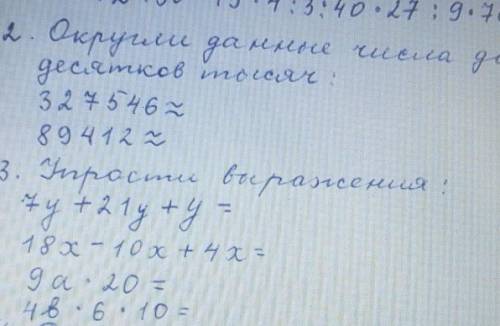 · 4 : 3 : 40 · 27 : 9 · 7
2. Округли данные числа до
десятков тысяч :
327546 ≈
89412 ≈
3. Упрости выражения :
7у + 21у + у =
18х - 10х + 4х =
9а · 20 =
4в · 6 · 10 =